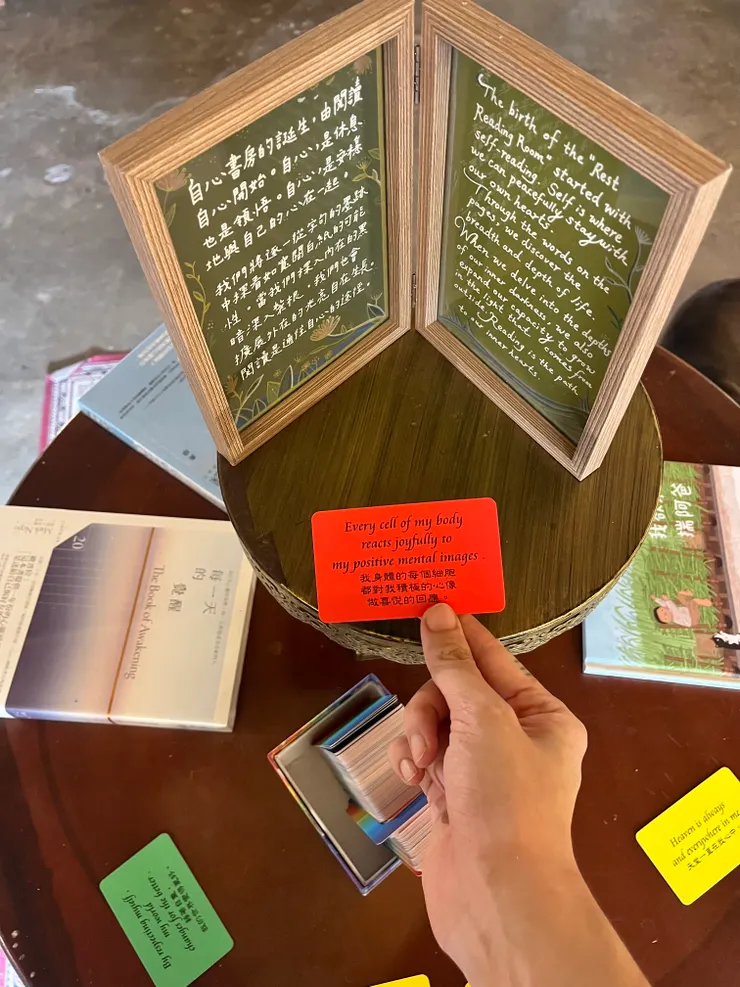 自心書房的誕生，由閱讀
自心開始。自心，是休息
也是領悟。自心，是安穩
地與自己的心在一起。
我們將逐一從字句的墨跡
中探看如裏開白紙的可能
性。當我們探入內在的黑
暗深入紮根，我們也會
擴展外在的光亮自在生長。
閱讀是通往自心的途徑。
The birth of the "Rest
Reading Room" started with
self-reading. Self is where
we can peacefully stay with
our own hearts.
Through the words on the
pages, we discover the
breadth and depth of life.
When we delve into the depths
of our inner darkness, we also
expand our capacity to grow
in the light that comes from
outside. Reading is the path
to our inner hearts.
Every cell of my body
reacts joyfully to
my positive mental images.
我身體的每個細胞
都對我積極的心像
做喜悅的回應。
20
每一天
的
覺醒
The Book of Awakening
爸阿
瑞
Heaven is always
and everywhere in me
天堂一直在我心中
By respecting myself,
my world
changes for the better.
藉著自重，
我的世界變得美好。